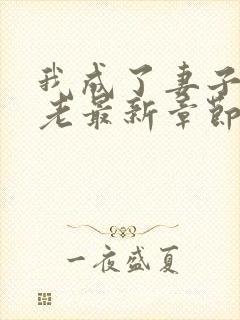 我成了妻子
老最新章節
一夜盛夏